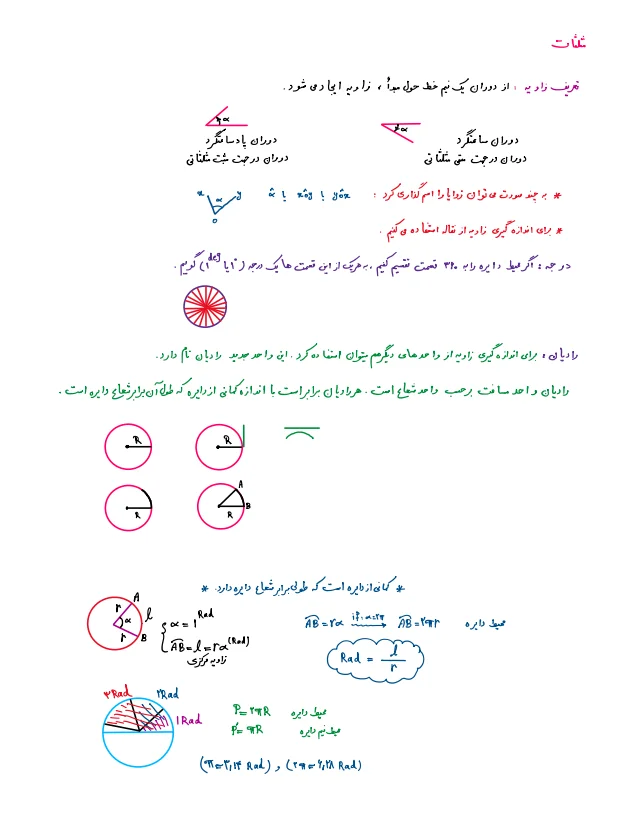 مثلثات
تعریف زاویه : از دوران یک نیم خط حول مبدأ ، زاویه ایجاد می شود .
α
α
دوران پادساعتگرد
دوران ساعتگرد
دوران در جهت مثبت مثلثاتی
دوران در جهت منفی مثلثاتی
* به چند صورت می توان زوایا را اسم گذاری کرد : yôx یا xôy یا α̂
x α y
o
* برای اندازه گیری زاویه از نقاله استفاده می کنیم .
درجه : اگر محیط دایره را به ۳۶۰ قسمت تقسیم کنیم ، به هریک از این قسمت ها یک درجه (۱° یا ۱deg) گویم .
رادیان : برای اندازه گیری زاویه از واحد های دیگر هم میتوان استفاده کرد . این واحد جدید رادیان نام دارد .
رادیان واحد مسافت برحسب واحد شعاع است . هر رادیان برابر است با اندازه کمانی از دایره که طول آن برابر شعاع دایره است .
R
R
R
A
R B
* کمانی از دایره است که طولی برابر شعاع دایره دارد . *
A
r l
α
r B
α = ۱ Rad
AB = l = rα (Rad)
زاویه مرکزی
AB = rα if: α=۲π AB = ۲πr محیط دایره
Rad = l / r
۳Rad ۲Rad
۱Rad
P = ۲πR محیط دایره
P = πR محیط نیم دایره
(π = ۳,۱۴ Rad) و (۲π = ۶,۲۸ Rad)